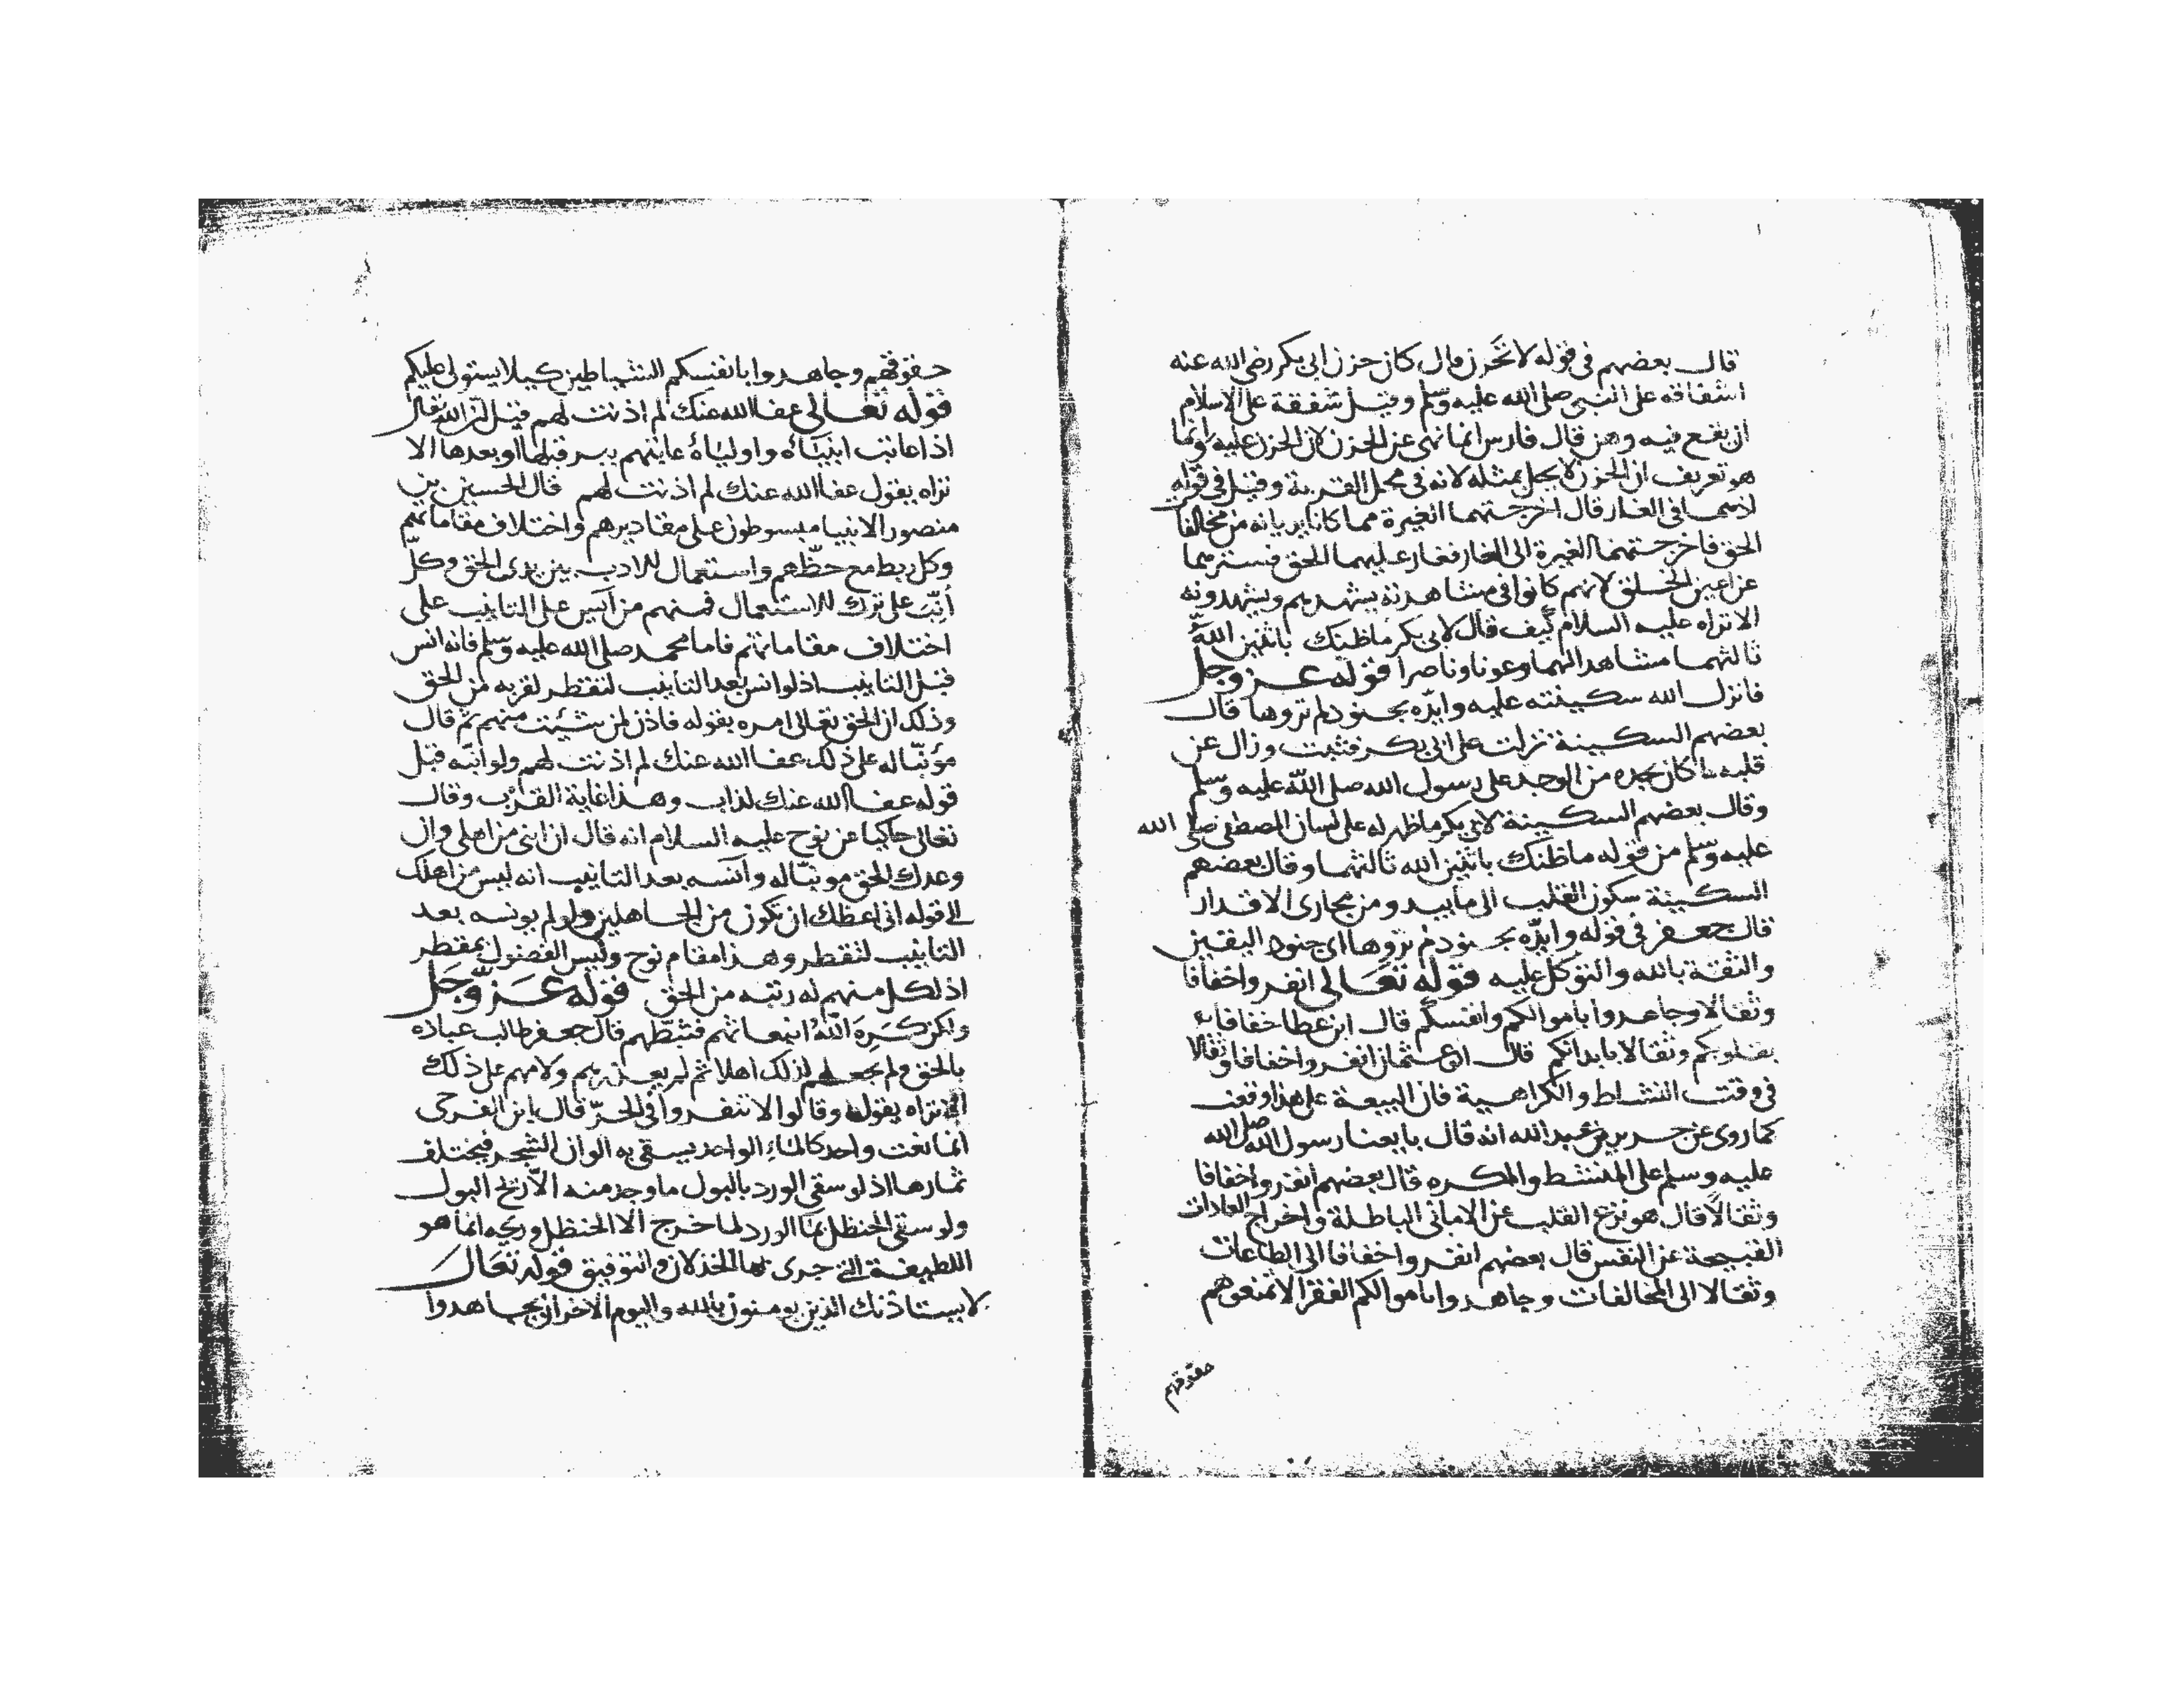 قال بعضهم في قوله لا تحزن قال كان حزن ابي بكر رضي الله عنه
اشفاقه على النبي صلى الله عليه وسلم وقيل شفقة على الاسلام
ان يقع فيه وهن قال فارس انما نهى عن الحزن لان الحزن عليه وانما
هو تعريف ان الحزن لا يحل بمثله لانه في محل القربة وقيل في قوله
اذ هما في الغار قال اخرجتهما الغيرة مما كانا يريانه من مخالفا
الحق فاخرجتهما الغيرة الى الغار فغار عليهما الحق فسترهما
عن اعين الخلق لانهم كانوا في مشاهدته يشهدهم ويشهدونه
الا تراه عليه السلام كيف قال لابي بكر ما ظنك باثنين الله
ثالثهما مشاهدا لهما وعونا وناصرا قوله عز وجل
فانزل الله سكينته عليه وايّده بجنود لم تروها قال
بعضهم السكينة نزلت على ابي بكر فثبت وزال عن
قلبه ما كان يجده من الوجد على رسول الله صلى الله عليه وسلم
وقال بعضهم السكينة لابي بكر ما ظهر له على لسان المصطفى صلى الله
عليه وسلم من قوله ما ظنك باثنين الله ثالثهما وقال بعضهم
السكينة سكون القلب الى ما يبدو من مجاري الاقدار
قال جعفر في قوله وايّده بجنود لم تروها اي جنود اليقين
والثقة بالله والتوكل عليه قوله تعالى انفروا خفافا
وثقالا وجاهدوا باموالكم وانفسكم قال ابن عطا خفافا
بقلوبكم وثقالا بابدانكم قال ابو عثمان انفروا خفافا وثقالا
في وقت النشاط والكراهية فان البيعة على هذا وقعت
كما روي عن جرير بن عبد الله انه قال بايعنا رسول الله صلى الله
عليه وسلم على المنشط والمكره قال بعضهم انفروا خفافا
وثقالا قال هو نزع القلب عن الاماني الباطلة واخراج العادات
القبيحة عن النفس قال بعضهم انفروا خفافا الى الطاعات
وثقالا الى المخالفات وجاهدوا باموالكم الفقرا لا تمنعوهم
حقوقهم
حقوقهم وجاهدوا بانفسكم الشياطين كيلا يستولي عليكم
قوله تعالى عفا الله عنك لم اذنت لهم قيل ان الله تعالى
اذا عاتب انبياءه واولياءه عاتبهم ببر قبلها او بعدها الا
تراه يقول عفا الله عنك لم اذنت لهم قال الحسين بن
منصور الانبيا مبسوطون على مقاديرهم واختلاف مقاماتهم
وكل ربط مع حظّهم واستعمال للادب بين يدي الحق وكلّ
أُنِّبَ على ترك الاستعمال فمنهم من آنس على التانيب على
اختلاف مقاماتهم فاما محمد صلى الله عليه وسلم فانه انس
قبل التانيب اذ لو انس بعد التانيب لتفطر لقربه من الحق
وذلك ان الحق تعالى امره بقوله فاذن لمن شئت منهم ثم قال
مؤنّبا له على ذلك عفا الله عنك لم اذنت لهم ولو انّبه قبل
قوله عفا الله عنك لذاب وهذا غاية القرب وقال
تعالى حاكيا عن نوح عليه السلام انه قال ان ابني من اهلي وان
وعدك الحق مونبا له وآنسه بعد التانيب انه ليس من اهلك
الى قوله اني اعظك ان تكون من الجاهلين ولو لم يونسه بعد
التانيب لتفطر وهذا مقام نوح وليس المفضول بمفطر
اذ لكل منهم له رتبه من الحق قوله عز وجل
ولكن كَرِهَ اللهُ انبعاثهم فثبّطهم قال جعفر طالب عباده
بالحق ولم يجعلهم لذلك اهلا ثم لم يعذرهم ولامهم على ذلك
الا تراه يقول وقالوا لا تنفروا في الحرّ قال ابن الفرحي
انما نعت واحد كالماء الواحد يسقى به الوان الشجر فيختلف
ثمارها اذ لو سقي الورد بالبول ما وجد منه الا ريح البول
ولو سقي الحنظل بماا الورد لما خرج الا الحنظل وريحه انما هو
اللطيفة التي جرى بها الخذلان والتوفيق قوله تعالى
لا يستاذنك الذين يومنون بالله واليوم الاخر ان يجاهدوا